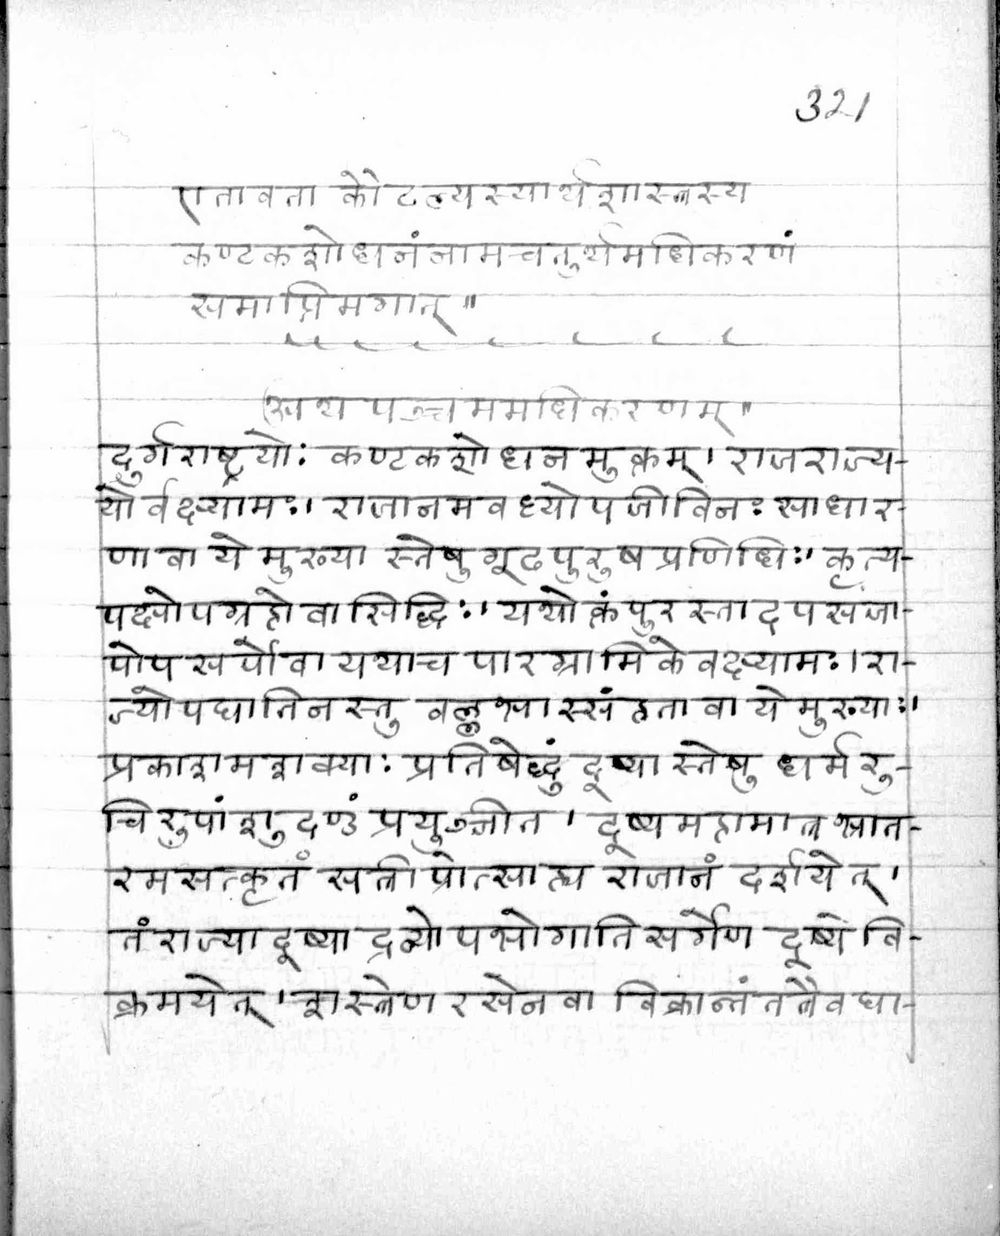 321
एतावता कौटल्यस्यार्थशास्त्रस्य
कण्टकशोधनंनामचतुर्थमधिकरणं
समाप्तिमगात्॥
अथ पञ्चममधिकरणम्॥
दुर्गराष्ट्रयोः कण्टकशोधनमुक्तम्। राजराज्य-
योर्वक्ष्यामः। राजानमवध्योपजीविनः साधार-
णा वा ये मुख्या स्तेषु गूढपुरुषप्रणिधिः। कृत्य-
पक्षोपग्रहो वा सिद्धिः। यथोक्तंपुरस्तादपसंजा-
पोपसर्पो वा यथा च पारग्रामिके वक्ष्यामः। रा-
ज्योपघातिनस्तु वल्लभास्संहता वा ये मुख्याः।
प्रकाशमशक्याः प्रतिषेद्धुं दूष्यास्तेषु धर्मरु-
चिरुपांशुदण्डं प्रयुञ्जीत। दूष्यमहामात्रभ्रात-
रमसत्कृतं सत्री प्रोत्साह्य राजानं दर्शयेत्।
तं राज्या दूष्या द्रव्योपभोगातिसर्गेण दूष्ये वि-
क्रमयेत्। शस्त्रेण रसेन वा विक्रान्तं तत्रैव घा-